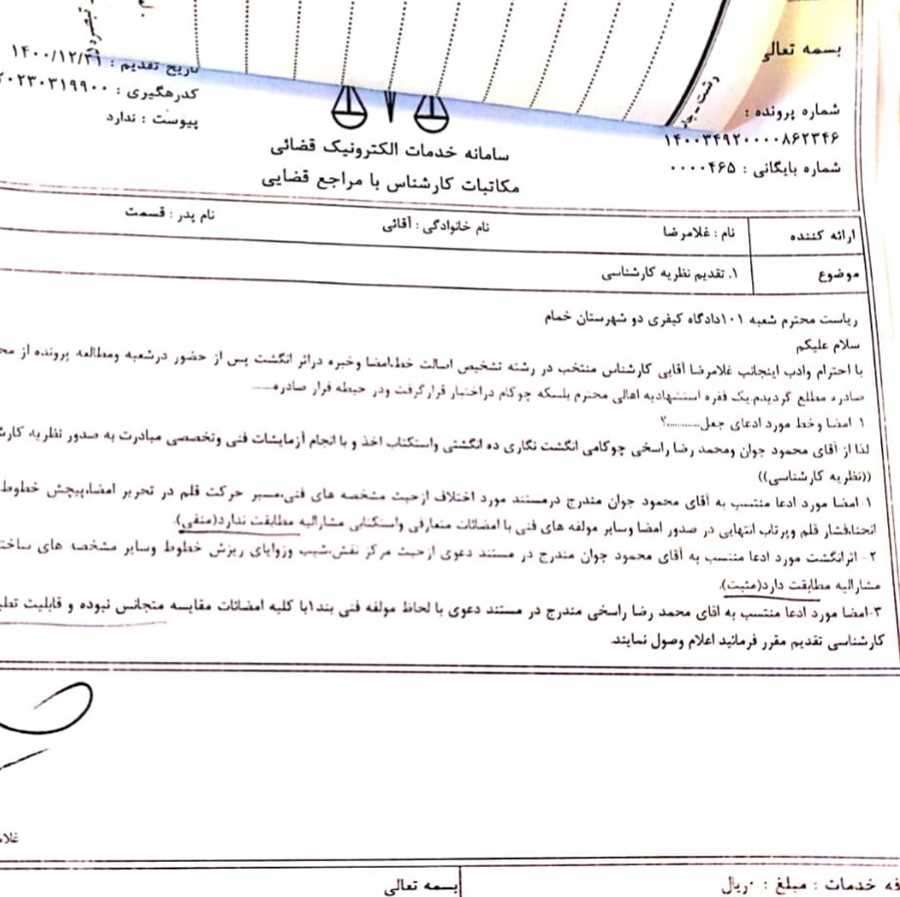 بسمه تعالی
تاریخ تقدیم : ۱۴۰۰/۱۲/۲۱
کدرهگیری : ۲۰۲۳۰۳۱۹۹۰۰
پیوست : ندارد
شماره پرونده :
۱۴۰۰۳۴۹۲۰۰۰۰۸۶۲۳۴۶
شماره بایگانی : ۰۰۰۰۴۶۵
رشت -
سامانه خدمات الکترونیک قضائی
مکاتبات کارشناس با مراجع قضایی
ارائه کننده نام : غلامرضا نام خانوادگی : آقائی نام پدر : قسمت
موضوع ۱. تقدیم نظریه کارشناسی
ریاست محترم شعبه ۱۰۱دادگاه کیفری دو شهرستان خمام
سلام علیکم
با احترام وادب اینجانب غلامرضا آقایی کارشناس منتخب در رشته تشخیص اصالت خط،امضا وخبره دراثر انگشت پس از حضور درشعبه ومطالعه پرونده از
صادره مطلع گردیدم.یک فقره استشهادیه اهالی محترم بلسکه چوکام دراختیار قرارگرفت ودر حیطه قرار صادره.....
۱ امضا وخط مورد ادعای جعل..........؟
لذا از آقای محمود جوان ومحمد رضا راسخی چوکامی انگشت نگاری ده انگشتی واستکتاب اخذ و با انجام آزمایشات فنی وتخصصی مبادرت به صدور نظریه
((نظریه کارشناسی))
۱ امضا مورد ادعا منتسب به آقای محمود جوان مندرج درمستند مورد اختلاف ازحیث مشخصه های فنی،مسیر حرکت قلم در تحریر امضا،پیچش خطوط
انحنا،فشار قلم وپرتاب انتهایی در صدور امضا وسایر مولفه های فنی با امضائات متعارفی واستکتابی مشارالیه مطابقت ندارد(منفی).
۲- اثرانگشت مورد ادعا منتسب به آقای محمود جوان مندرج در مستند دعوی ازحیث مرکز نقش،شیب وزوایای ریزش خطوط وسایر مشخصه های
مشارالیه مطابقت دارد(مثبت).
۳-امضا مورد ادعا منتسب به اقای محمد رضا راسخی مندرج در مستند دعوی با لحاظ مولفه فنی بند۱با کلیه امضائات مقایسه متجانس نبوده و قابلیت
کارشناسی تقدیم مقرر فرمائید اعلام وصول نمایند.
بسمه تعالی
خدمات : مبلغ : ۰ریال